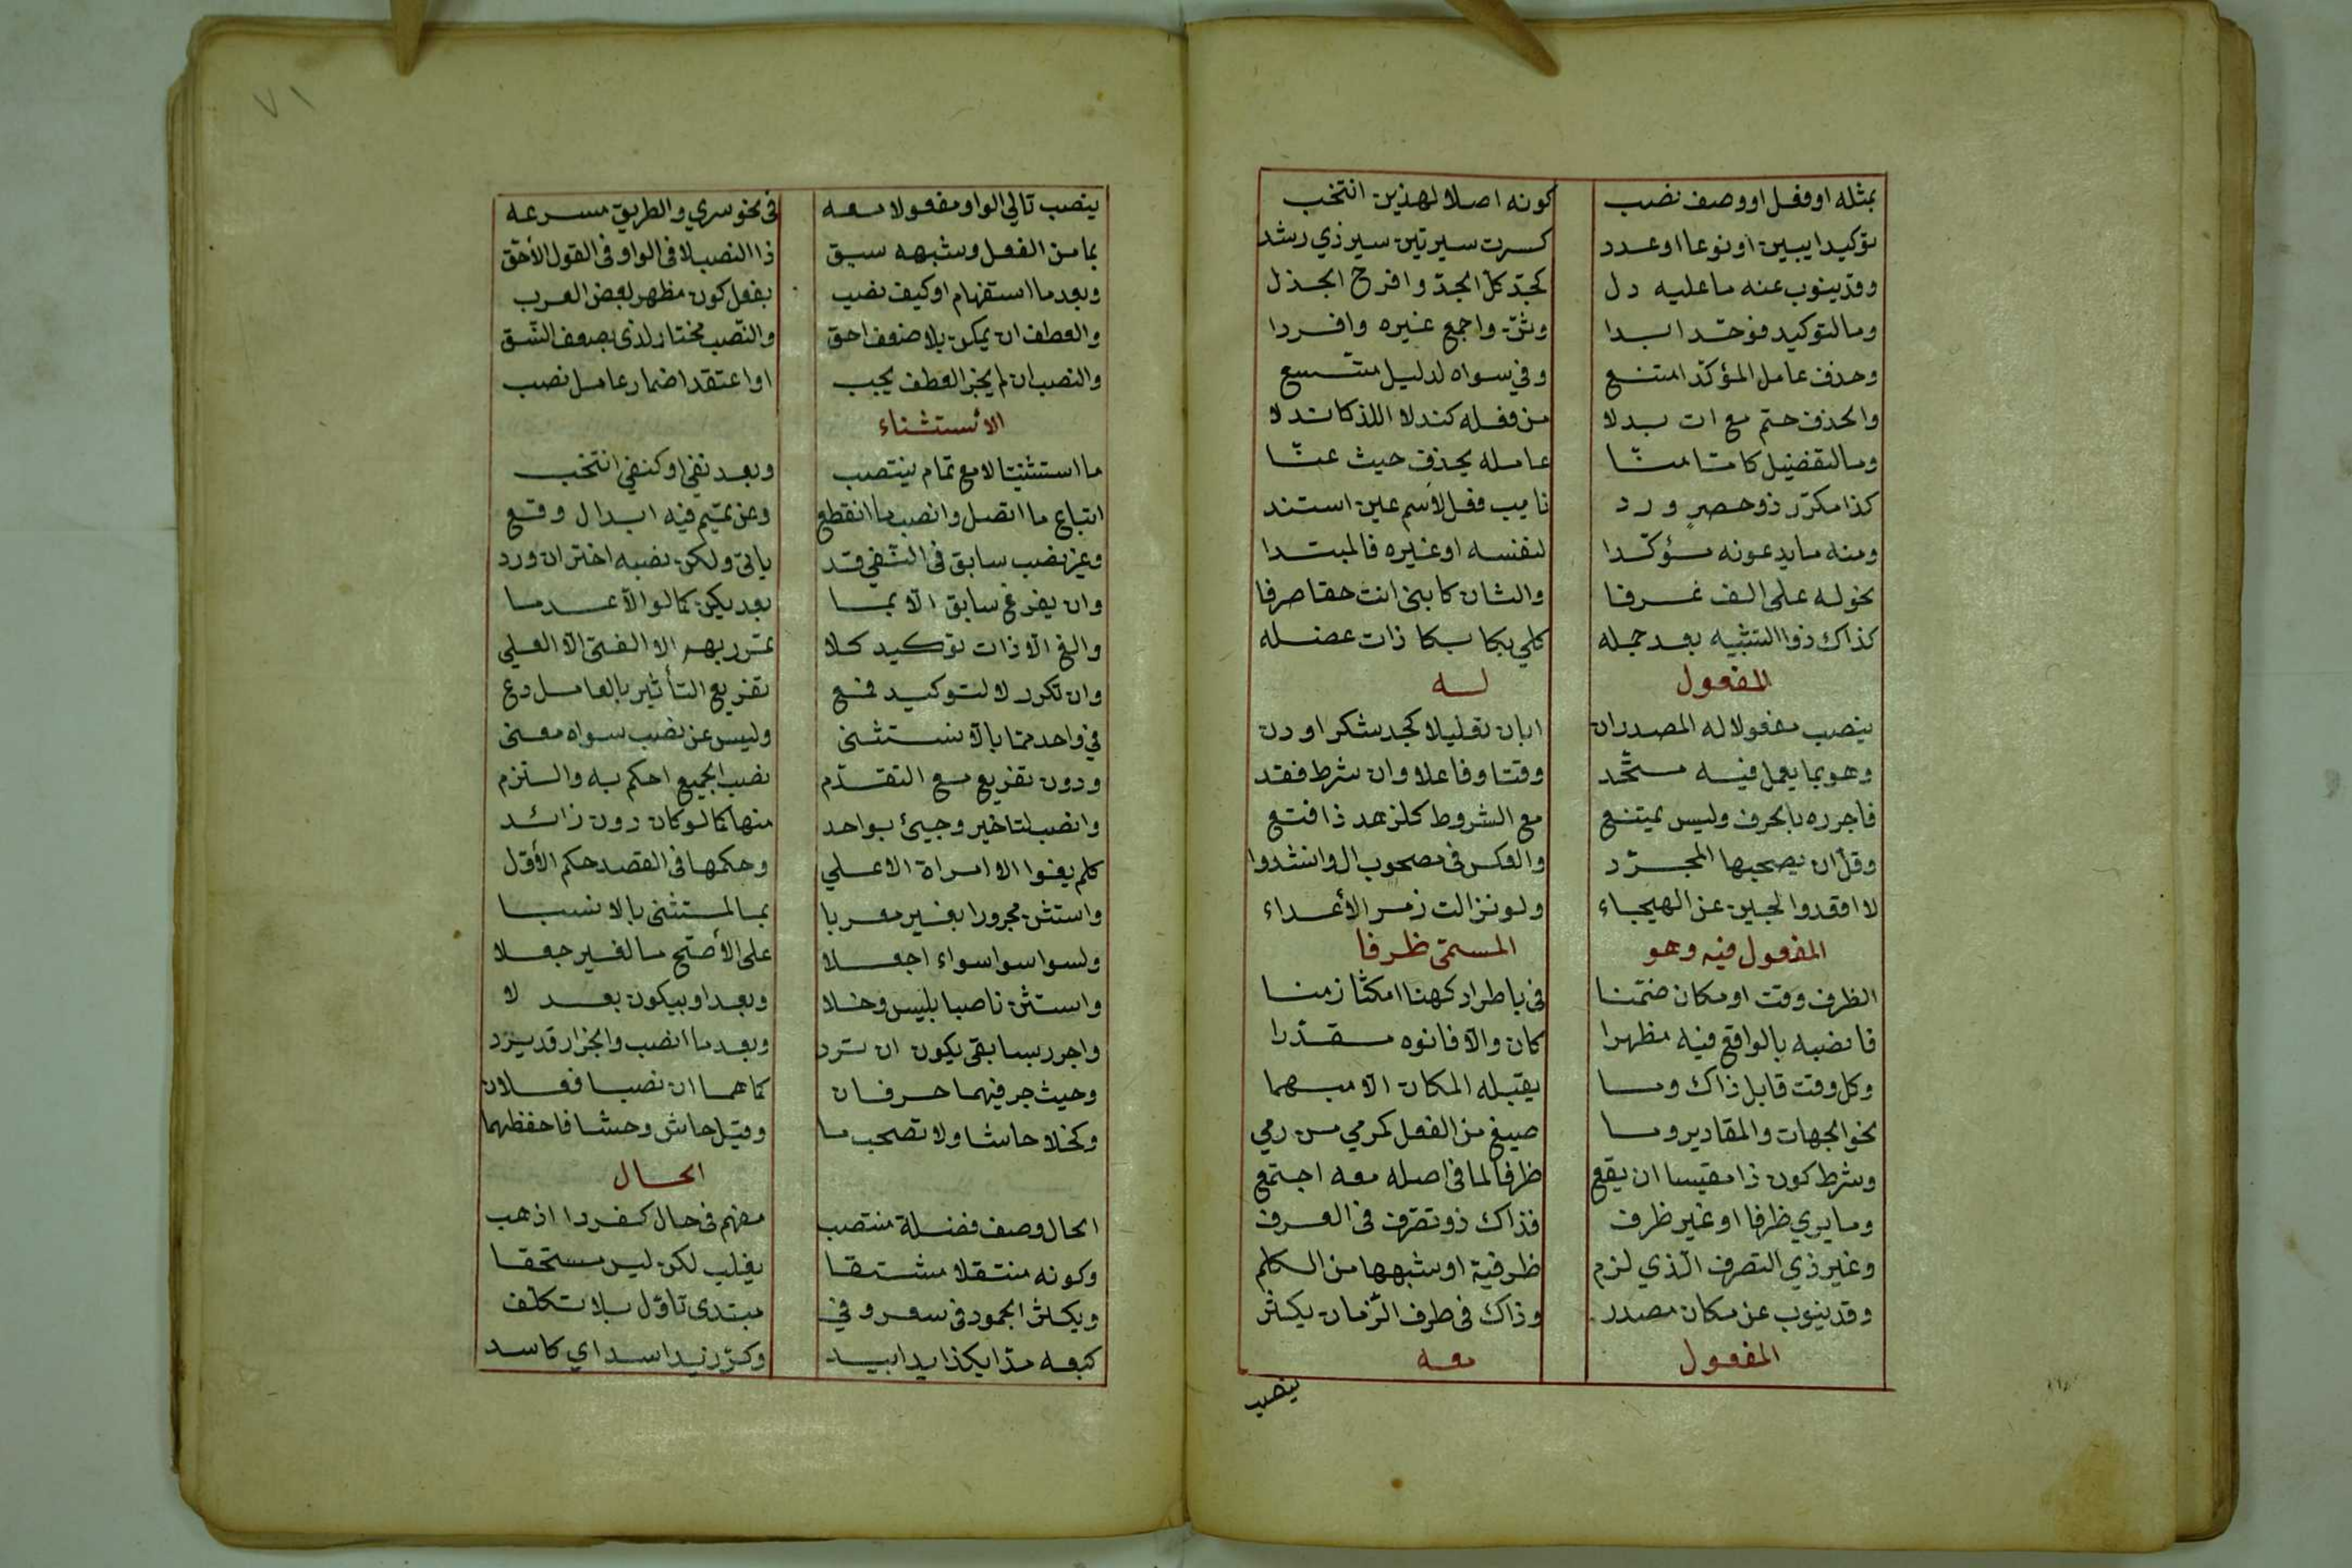 بمثله او فعل او وصف نصب كونه اصلا لهذين انتخب
توكيدا يبين او نوعا او عدد كسرت سيرتين سير ذي رشد
وقد ينوب عنه ما عليه دل كجد كل الجد وافرح الجذل
وما لتوكيد فوحد ابدا وثن واجمع غيره وافردا
وحذف عامل المؤكد امتنع وفي سواه لدليل متسع
والحذف حتم مع ات بدلا من فعله كندلا اللذ كاندلا
وما لتفضيل كاما منا عامله يحذف حيث عنا
كذا مكرر ذو حصر ورد نايب فعل لاسم عين استند
ومنه ما يدعونه مؤكدا لنفسه او غيره فالمبتدا
نحو له على الف عرفا والثان كابني انت حقا صرفا
كذاك ذوا التشبيه بعد جمله كلي بكا بكا ذات عضله
المفعول له
ينصب مفعولا له المصدر ان ابان تعليلا كجد شكرا ودن
وهو بما يعمل فيه متحد وقتا وفاعلا وان شرط فقد
فاجرره بالحرف وليس يمتنع مع الشروط كلزهد ذا قنع
وقل ان يصحبها المجرد والعكس فى مصحوب ال وانشدوا
لا اقعد والجبن عن الهيجاء ولو نزالت زمر الأعداء
المفعول فيه وهو المسمى ظرفا
الظرف وقت او مكان ضمنا فى باطراد كهنا امكث ازمنا
فانصبه بالواقع فيه مظهرا كان والا فانوه مقدرا
وكل وقت قابل ذاك وما يقبله المكان الا مبهما
نحو الجهات والمقادير وما صيغ من الفعل كمرمي من رمي
وشرط كون ذا مقيسا ان يقع ظرفا لما فى اصله معه اجتمع
وما يرى ظرفا او غير ظرف فذاك ذو تصرف فى العرف
وغير ذي التصرف الذي لزم ظرفية او شبهها من الكلم
وقد ينوب عن مكان مصدر وذاك فى ظرف الزمان يكثر
المفعول معه
ينصب
٧١
ينصب تالي الواو مفعولا معه فى نحو سري والطريق مسرعه
بما من الفعل وشبهه سبق ذا النصب لا فى الواو فى القول الأحق
وبعد ما استفهام او كيف نصب بفعل كون مظهر لبعض العرب
والعطف ان يمكن بلا ضعف احق والنصب مختار لذى بضعف النسق
والنصب ان لم يجز العطف يجب او اعتقد اضمار عامل نصب
الأستثناء
ما استثنيت الا مع تمام ينتصب وبعد نفى او كنفي انتخب
اتباع ما اتصل وانصب ما انقطع وعن تميم فيه ابدال وقع
وغير نصب سابق فى النفي قد ياتى ولكن نصبه اختر ان ورد
وان يفرغ سابق الا بما بعد يكن كما لو الا عدما
والغ الا ذات توكيد كلا تمرر بهم الا الفتى الا العلي
وان تكرر لا لتوكيد فمع تفريع التأثير بالعامل دع
في واحد مما بالا استثنى وليس عن نصب سواه معنى
ودون تفريع مع التقدم نصب الجميع احكم به والتزم
وانصب لتاخير وجيئ بواحد منها كما لو كان دون زائد
كلم يفوا الا امراة الا علي وحكمها فى القصد حكم الأول
واستثن مجرورا بغير معربا بما لمستثنى بالا نسبا
ولسوا سوا سواء اجعلا على الأصح ما لغير جعلا
واستثن ناصبا بليس وخلا وبعدا وبيكون بعد لا
واجرر بسابقى يكون ان ترد وبعد ما انصب والجرار قد يرد
وحيث جر فيهما حرفان كما هما ان نصبا فعلان
وكخلا حاشا ولا تصحب ما وقيل حاش وحشا فاحفظهما
الحال
الحال وصف فضلة منتصب مفهم فى حال كفردا اذهب
وكونه منتقلا مشتقا يغلب لكن ليس مستحقا
ويكثر الجمود فى سعر وفي مبتدى تاؤل بلا تكلف
كبعه مدا بكذا يدا بيد وكر زيدا اسدا اي كاسد